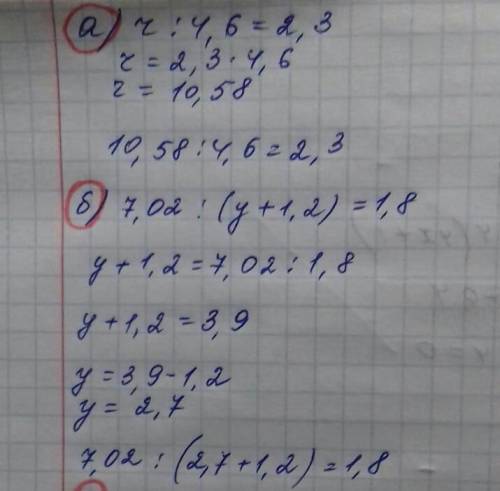 а) r : 4,6 = 2,3
r = 2,3 · 4,6
r = 10,58
10,58 : 4,6 = 2,3
б) 7,02 : (y + 1,2) = 1,8
y + 1,2 = 7,02 : 1,8
y + 1,2 = 3,9
y = 3,9 - 1,2
y = 2,7
7,02 : (2,7 + 1,2) = 1,8